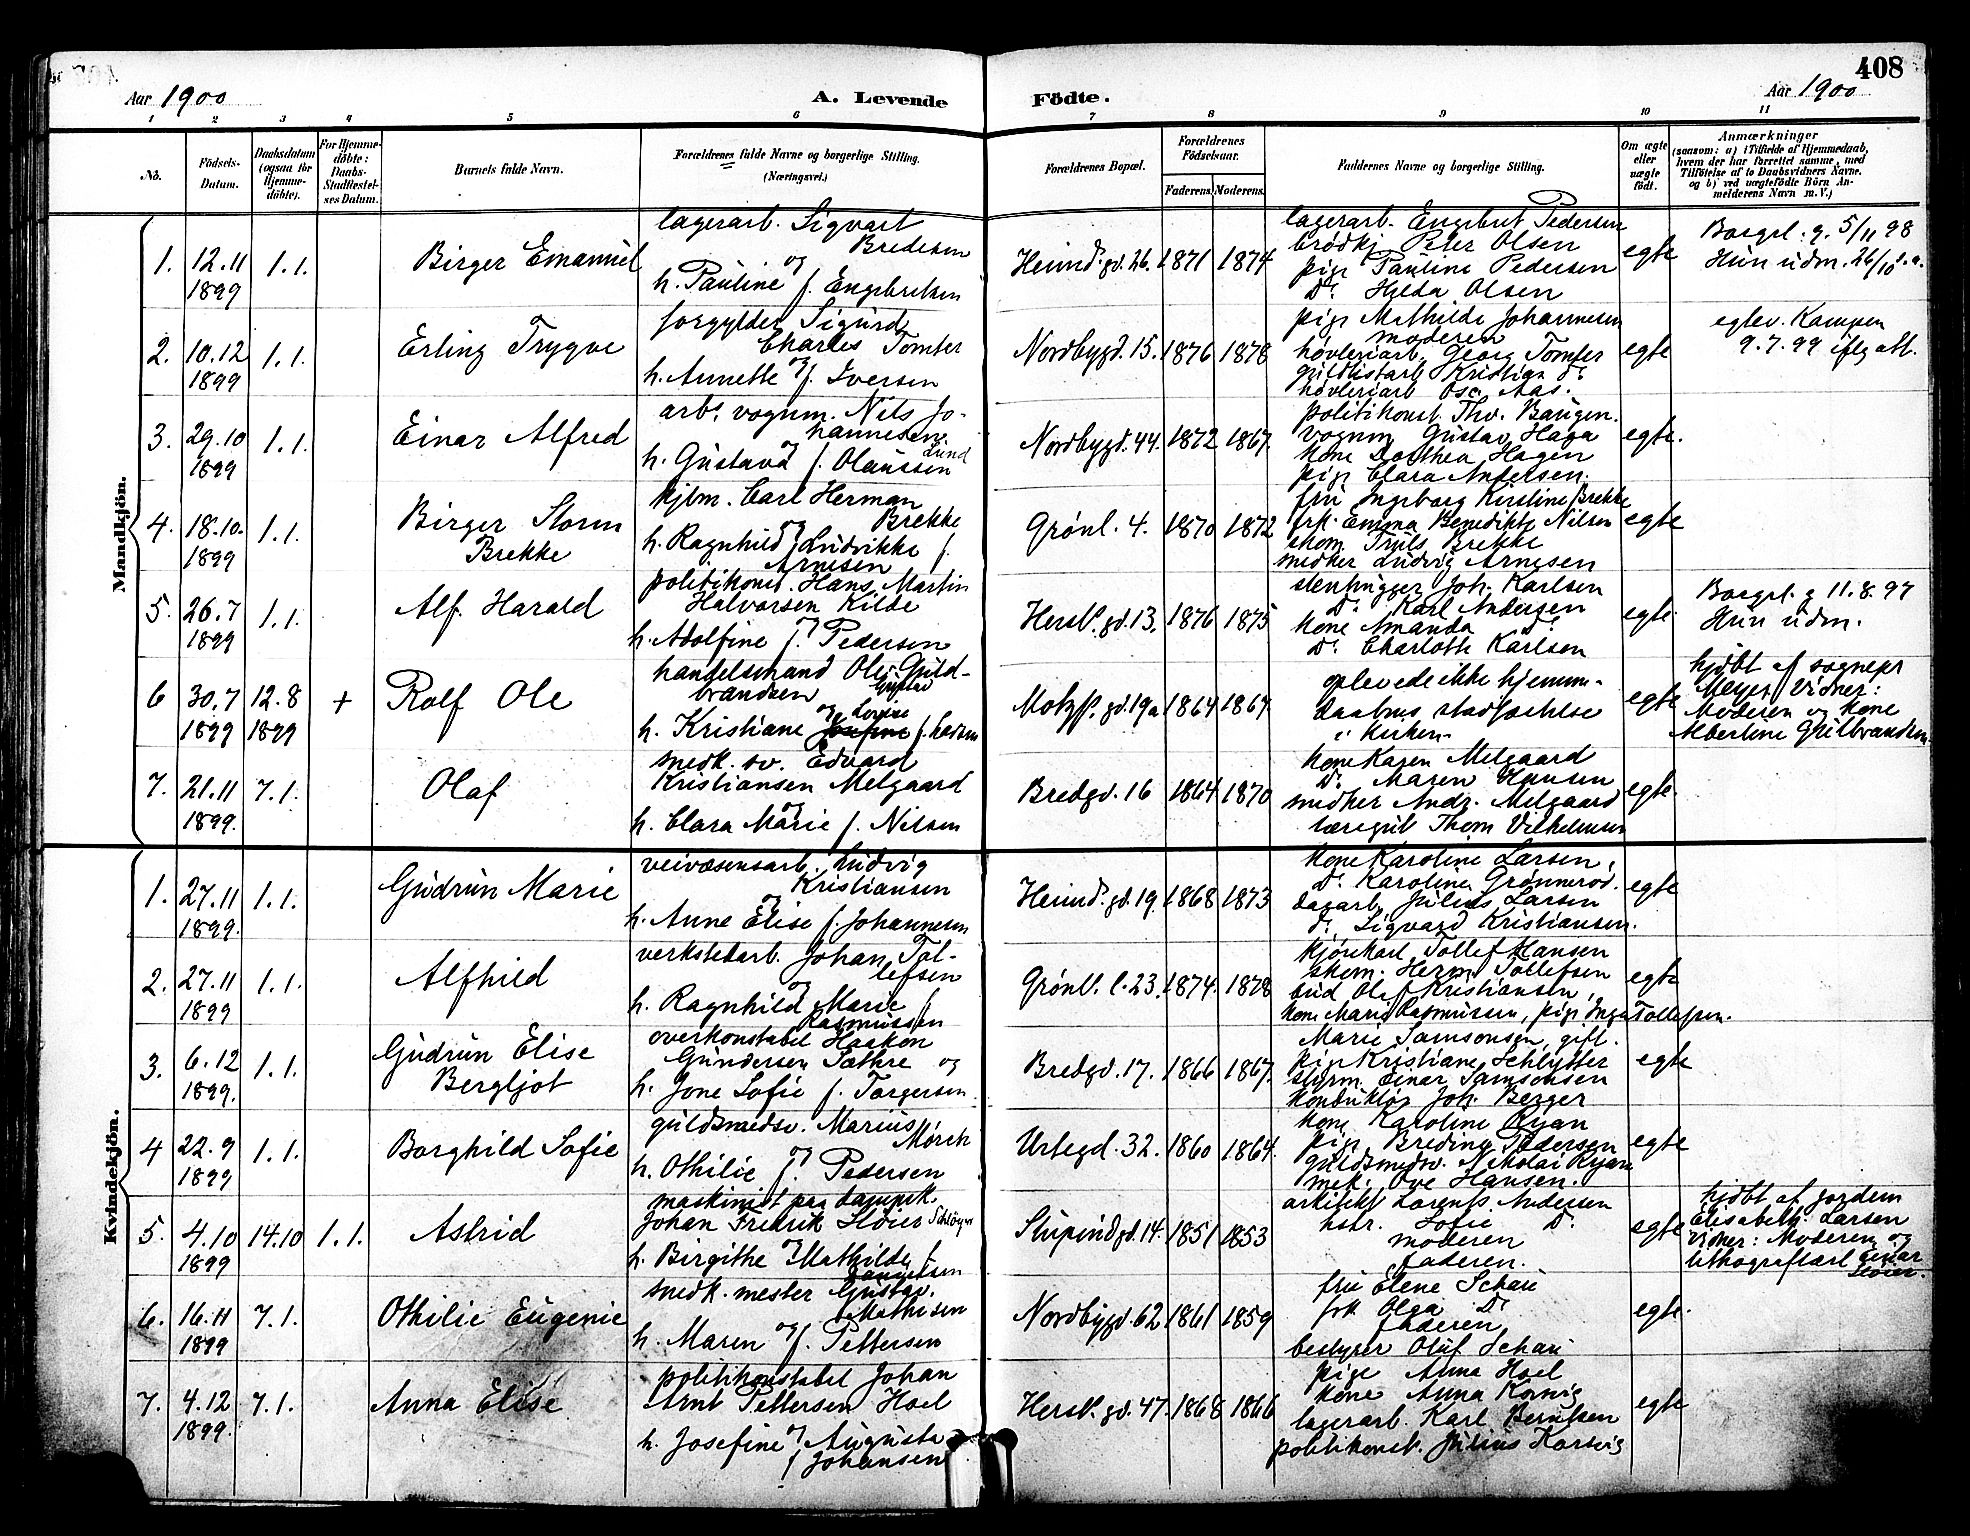 Aar 1900
A. Levende
Födte.
408
Aar 1900
1 2 3 4 5 6 7 8 9 10 11
No.
Födsels-
Datum.
Daabsdatum
(ogsaa for
Hjemme-
döbte).
For Hjemme-
döbte:
Daabs-
Stadfæstel-
ses Datum.
Barnets fulde Navn.
Forældrenes fulde Navne og borgerlige Stilling.
(Næringsvei.)
Forældrenes Bopæl.
Forældrenes
Födselsaar.
Faderens.
Moderens.
Faddernes Navne og borgerlige Stilling.
Om ægte
eller
uægte
födt.
Anmærkninger
(saasom: a) i Tilfælde af Hjemmedaab,
hvem der har forrettet samme, med
Tilföielse af to Daabsvidners Navne,
og b) ved uægtefödte Börn An-
melderens Navn m. V.)
Mandkjön.
1.
12.11
1899
1.1.
Birger Emanuel
lagerarb. Sigvart
Bredesen
og
h. Pauline f. Engebretsen
Heimd. gd. 26.
1871
1874
lagerarb. Engebret Pedersen
brødkj Peter Olsen
pige Pauline Pedersen
Do Hilda Olsen
egte
Borgel. g. 5/11 98
Hun udm. 26/10 s.a.
2.
10.12
1899
1.1.
Erling Trygve
forgylder Sigurd
Charles Tomter
og
h. Annette f. Iversen
Nordbygd. 15.
1876
1878
pige Mathilde Johannesen
moderen
høvleriarb. Georg Tomter
guldlistarb Kristian do
høvleriarb Osc. Aas.
egte
egtev. Kampen
9.7.99 iflg att.
3.
29.10
1899
1.1.
Einar Alfred
arb. vognm. Nils Jo-
hannesen
Lund
og
h. Gustava f. Olaussen
Nordbygd. 44.
1872
1867.
politikonst. Thv. Baugen.
vognm Gustav Haga
kone Dorthea Hagen
pige Clara Andersen.
egte.
4.
18.10.
1899
1.1.
Birger Storm
Brekke
kjbm. Carl Herman
Brekke
og
h. Ragnhild Ludvikke f.
Arnesen
Grønl. 4.
1870
1872
fru Ingeborg Kirstine Brekke
frk. Emma Benedikte Nilsen
skom Truls Brekke
snedker Ludvig Arnesen
egte
5.
26.7
1899
1.1.
Alf Harald
politikonst. Hans Martin
Halvorsen Kilde
og
h. Adolfine f. Pedersen
Hersl. gd. 13.
1876
1875
stenhugger Joh. Karlsen
Do Karl Andersen
kone Amanda Do
Do Charlotte Karlsen
egte
Borgel. g 11.8.97
Hun udm.
6
30.7
1899
12.8
1899
+
Rolf Ole
handelsmand Ole Guld-
brandsen
Gustav
og Lovise
h. Kristiane Josefine f. Larsen
Motzf. gd. 19a
1864
1867
oplevede ikke hjemme-
daabens stadfæstelse
i kirken
egte
hjdbt af sognepr
Meyer Vidner:
Moderen og kone
Albertine Gulbrandsen
7.
21.11
1899.
7.1.
Olaf
snedk. sv. Edvard
Kristiansen Melgaard
og
h. Clara Marie f. Nilsen
Bredgd. 16
1864
1870
kone Karen Melgaard
Do Maren Hansen
snedker Andr. Melgaard
læregut Thom Vilhelmsen
egte.
Kvindekjön.
1.
27.11
1899.
1.1.
Gudrun Marie
veivæsensarb. Ludvig
Kristiansen
og
h. Anne Elise f. Johannesen
Heimd. gd. 19.
1868
1873
kone Karoline Larsen.
Do Karoline Grønnerød.
dagarb Julius Larsen
do Sigvard Kristiansen.
egte
2.
27.11
1899
1.1.
Alfhild
verkstedarb. Johan Tol-
lefsen
og
h. Ragnhild Marie f
Rasmussen
Grønl. l. 23.
1874.
1878
kjørekarl Tollef Hansen
skom. Herm Tollefsen
bud Olaf Kristiansen,
kone Marie Rasmussen, pige Inga Tollefsen.
egte
3.
6.12
1899.
1.1.
Gudrun Elise
Bergljot
overkonstabel Haakon
Gundersen Sæthre og
h. Jone Sofie f. Torgersen
Bredgd. 17.
1866
1867.
Marie Samsonsen, gift.
pige Kristiane Schlytter
styrm. Einar Samsonsen
konduktør Joh. Berger
egte
4
22.9
1899
1.1.
Borghild Sofie
guldsmedsv. Marius
Mørch
og
h. Othilie f. Pedersen
Urtegd. 32.
1860
1864.
kone Karoline Ryan
pige Bredine Pedersen
guldsmedsv. Nikolai Ryan
mek. Ove Hansen.
egte
5.
4.10
1899
14.10
1.1.
Astrid
maskinist paa dampsk.
Johan Fredrik Støier
og
h. Birgithe Mathilde f.
Danielsen
Stupindgd. 14.
1851
1853
arkitekt Lorents Andersen
hstr. Sofie Do
moderen
faderen.
egte
hjdbt af jordem
Elisabeth Larsen
vidner: Moderen og
lithografiarb Einar
Støier.
6.
16.11
1899
7.1.
Othilie Eugenie
snedk. mester Gustav
Mathisen
og
h. Maren f. Pettersen
Nordbygd. 62
1861
1859
fru Elene Schau
frk Olga Do
faderen
bestyrer Oluf Schau
egte.
7.
4.12
1899.
7.1.
Anna Elise
politikonstabel Johan
Arnt Pettersen Hoel
og
h. Josefine Augusta
f Johansen
Hersl. gd. 47.
1868
1866
pige Anna Hoel
kone Anna Kornig
lagerarb. Karl Berntsen
politikonst. Julius Korsvig
egte